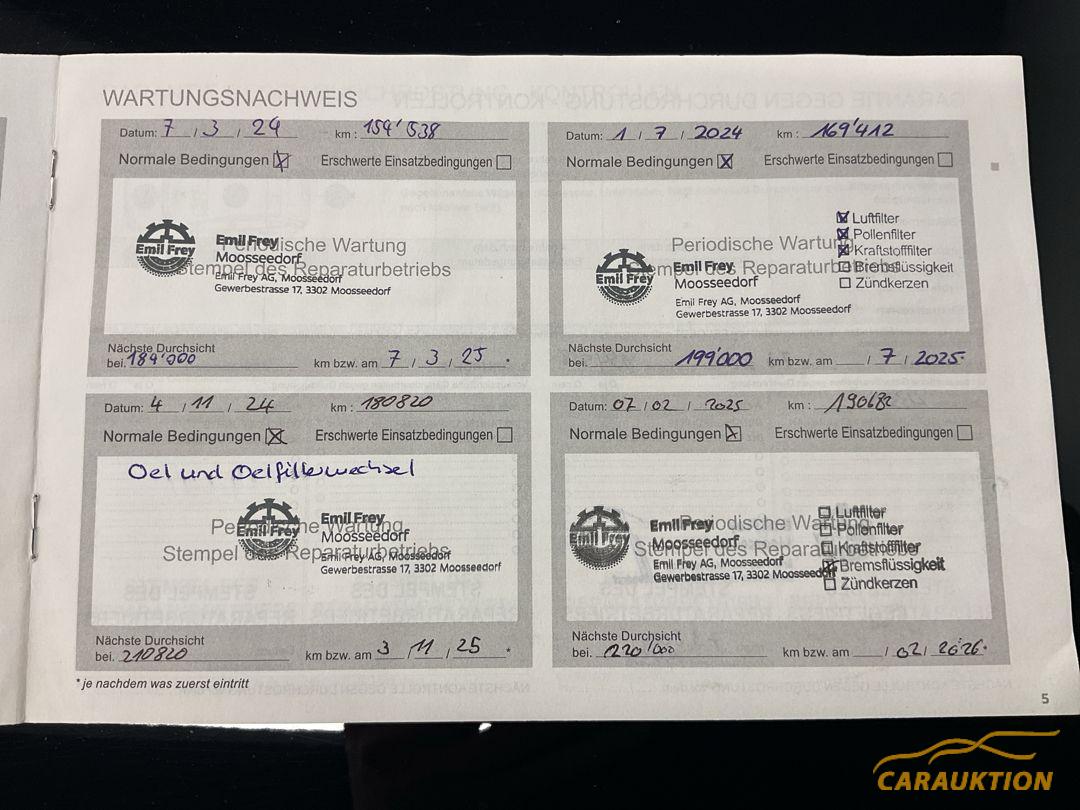 WARTUNGSNACHWEIS
Datum: 7 / 3 / 24 km : 154'538
Normale Bedingungen ☒ Erschwerte Einsatzbedingungen ☐
Emil Frey
Emil Frey
Periodische Wartung
Moosseedorf
Stempel des Reparaturbetriebs
Emil Frey AG, Moosseedorf
Gewerbestrasse 17, 3302 Moosseedorf
Nächste Durchsicht
bei. 184'000 km bzw. am 7 / 3 / 25 *
Datum: 1 / 7 / 2024 km : 169'412
Normale Bedingungen ☒ Erschwerte Einsatzbedingungen ☐
☒ Luftfilter
☒ Pollenfilter
☒ Kraftstofffilter
☐ Bremsflüssigkeit
☐ Zündkerzen
Periodische Wartung
Stempel des Reparaturbetriebs
Emil Frey
Emil Frey
Moosseedorf
Emil Frey AG, Moosseedorf
Gewerbestrasse 17, 3302 Moosseedorf
Nächste Durchsicht
bei. 199'000 km bzw. am / 7 / 2025 *
Datum: 4 / 11 / 24 km : 180820
Normale Bedingungen ☒ Erschwerte Einsatzbedingungen ☐
Oel und Oelfilterwechsel
Emil Frey
Emil Frey
Periodische Wartung
Moosseedorf
Stempel des Reparaturbetriebs
Emil Frey AG, Moosseedorf
Gewerbestrasse 17, 3302 Moosseedorf
Nächste Durchsicht
bei. 210820 km bzw. am 3 / 11 / 25 *
Datum: 07 / 02 / 2025 km :
Normale Bedingungen ☒ Erschwerte Einsatzbedingungen ☐
☐ Luftfilter
☐ Pollenfilter
☐ Kraftstofffilter
☒ Bremsflüssigkeit
☐ Zündkerzen
Emil Frey
Emil Frey
Periodische Wartung
Moosseedorf
Stempel des Reparaturbetriebs
Emil Frey AG, Moosseedorf
Gewerbestrasse 17, 3302 Moosseedorf
Nächste Durchsicht
bei. 220'000 km bzw. am / 02 / 2026 *
* je nachdem was zuerst eintritt
5
CARAUKTION